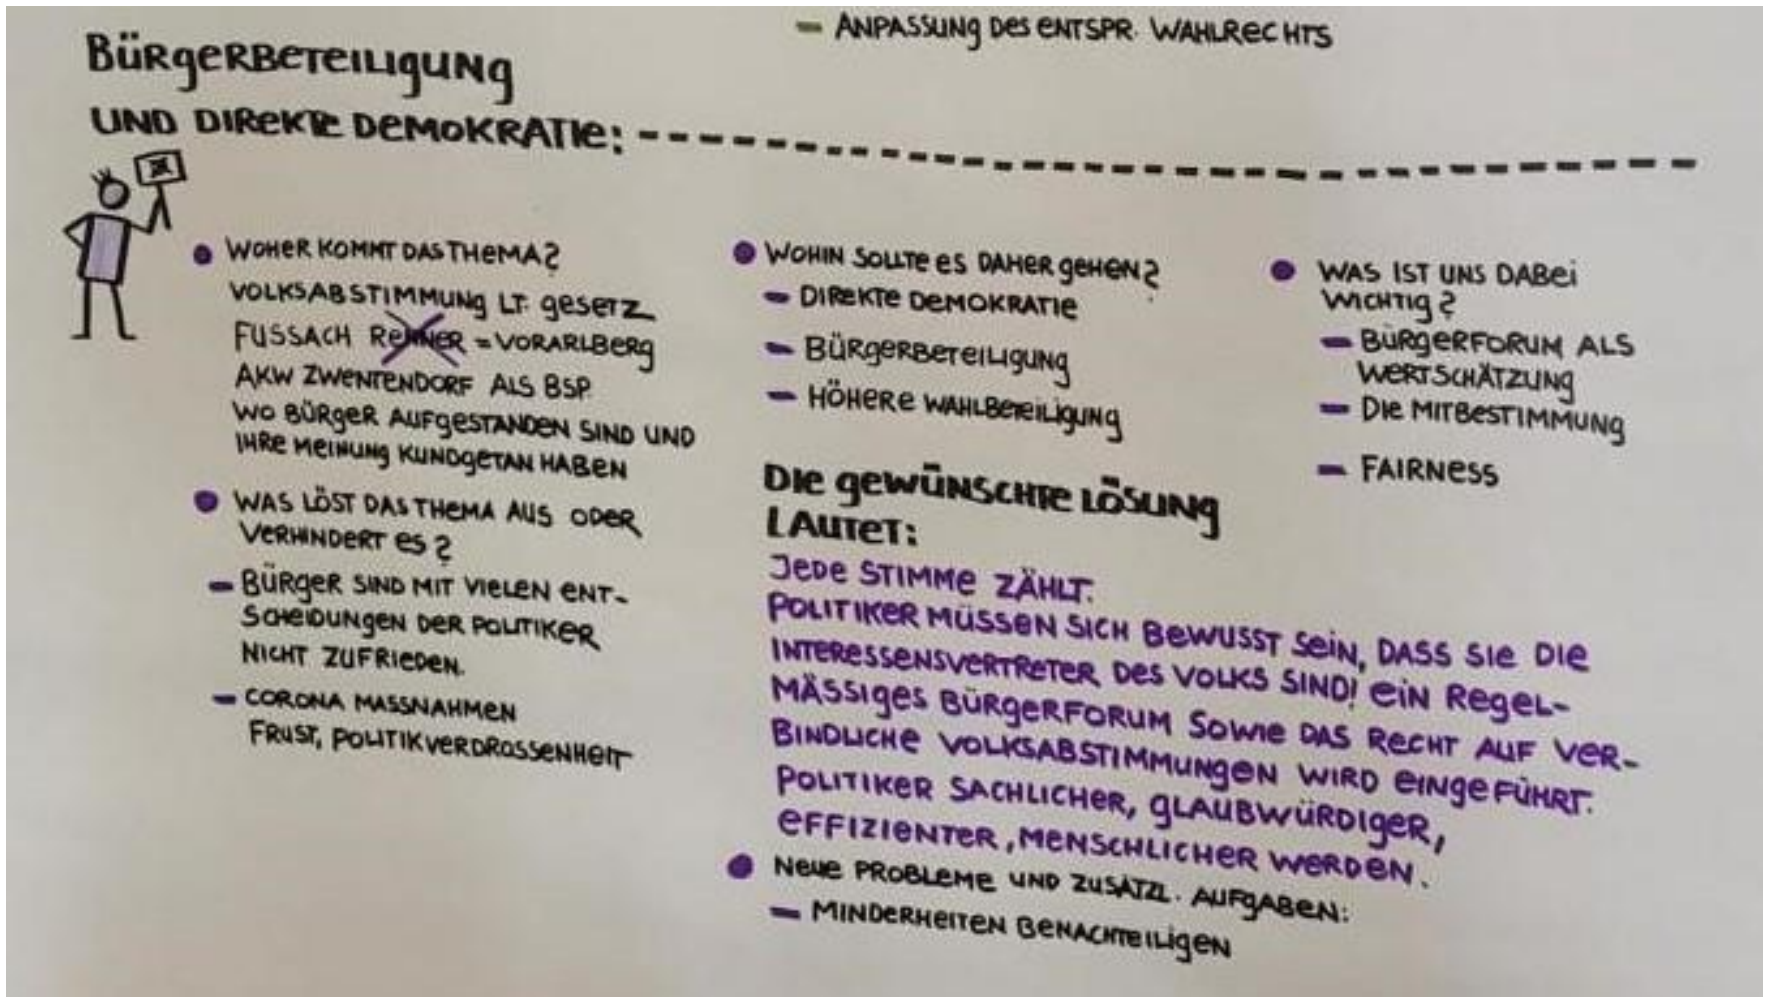 - ANPASSUNG DES ENTSPR. WAHLRECHTS
BÜRGERBETEILIGUNG
UND DIREKTE DEMOKRATIE:
WOHER KOMMT DAS THEMA?
VOLKSABSTIMMUNG LT. GESETZ
FUSSACH RENNER = VORARLBERG
AKW ZWENTENDORF ALS BSP.
WO BÜRGER AUFGESTANDEN SIND UND
IHRE MEINUNG KUNDGETAN HABEN
WAS LÖST DAS THEMA AUS ODER
VERHINDERT ES?
- BÜRGER SIND MIT VIELEN ENT-
SCHEIDUNGEN DER POLITIKER
NICHT ZUFRIEDEN.
- CORONA MASSNAHMEN
FRUST, POLITIKVERDROSSENHEIT
WOHIN SOLLTE ES DAHER GEHEN?
- DIREKTE DEMOKRATIE
- BÜRGERBETEILIGUNG
- HÖHERE WAHLBETEILIGUNG
WAS IST UNS DABEI
WICHTIG?
- BÜRGERFORUM ALS
WERTSCHÄTZUNG
- DIE MITBESTIMMUNG
- FAIRNESS
DIE GEWÜNSCHTE LÖSUNG
LAUTET:
JEDE STIMME ZÄHLT.
POLITIKER MÜSSEN SICH BEWUSST SEIN, DASS SIE DIE
INTERESSENSVERTRETER DES VOLKS SIND! EIN REGEL-
MÄSSIGES BÜRGERFORUM SOWIE DAS RECHT AUF VER-
BINDLICHE VOLKSABSTIMMUNGEN WIRD EINGEFÜHRT.
POLITIKER SACHLICHER, GLAUBWÜRDIGER,
EFFIZIENTER, MENSCHLICHER WERDEN.
NEUE PROBLEME UND ZUSÄTZL. AUFGABEN:
- MINDERHEITEN BENACHTEILIGEN